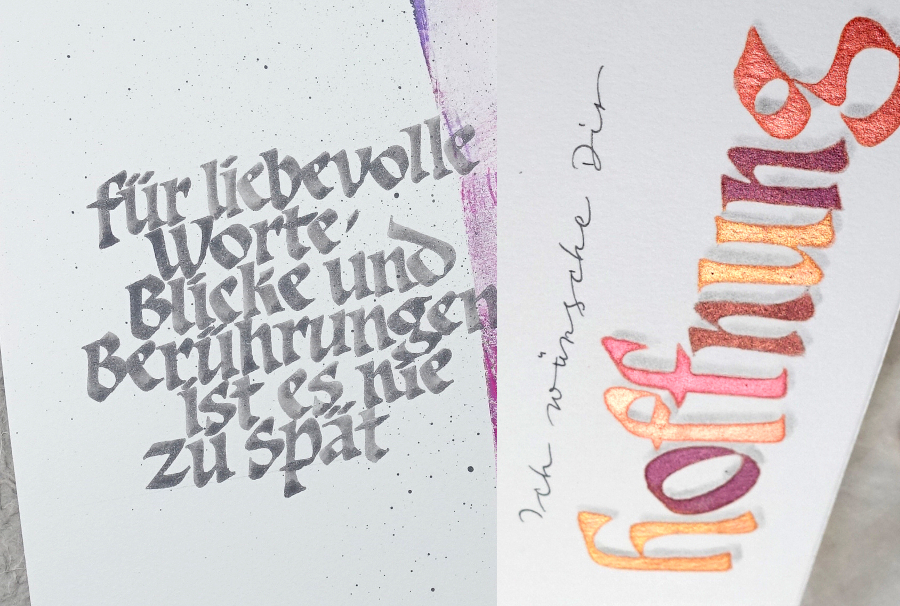 für liebevolle
Worte,
Blicke und
Berührungen
ist es nie
zu spät
Ich wünsche Dir
hoffnung